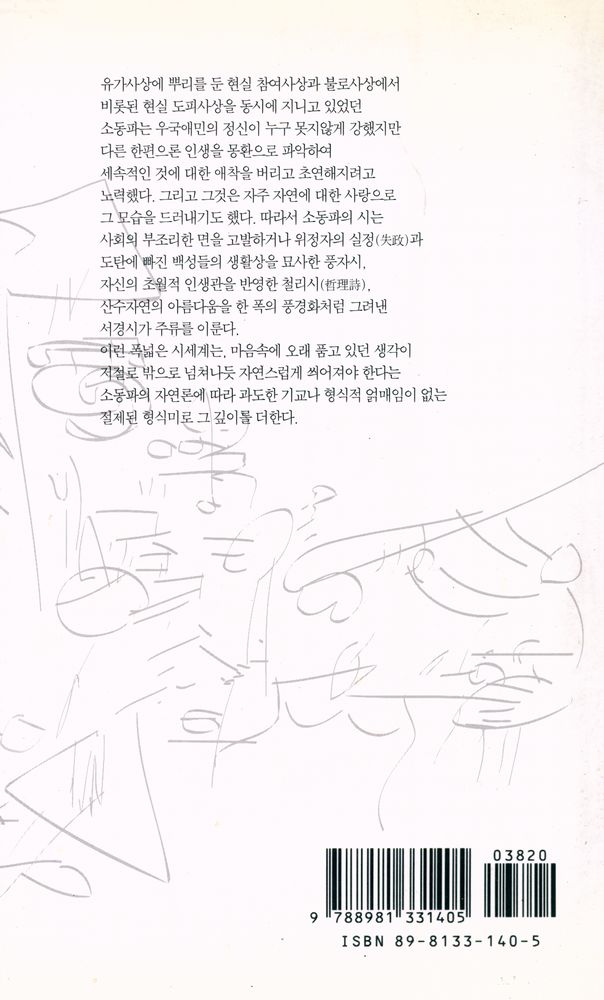 유가사상에 뿌리를 둔 현실 참여사상과 불로사상에서
비롯된 현실 도피사상을 동시에 지니고 있었던
소동파는 우국애민의 정신이 누구 못지않게 강했지만
다른 한편으론 인생을 몽환으로 파악하여
세속적인 것에 대한 애착을 버리고 초연해지려고
노력했다. 그리고 그것은 자주 자연에 대한 사랑으로
그 모습을 드러내기도 했다. 따라서 소동파의 시는
사회의 부조리한 면을 고발하거나 위정자의 실정(失政)과
도탄에 빠진 백성들의 생활상을 묘사한 풍자시,
자신의 초월적 인생관을 반영한 철리시(哲理詩),
산수자연의 아름다움을 한 폭의 풍경화처럼 그려낸
서경시가 주류를 이룬다.
이런 폭넓은 시세계는, 마음속에 오래 품고 있던 생각이
저절로 밖으로 넘쳐나듯 자연스럽게 씌어져야 한다는
소동파의 자연론에 따라 과도한 기교나 형식적 얽매임이 없는
절제된 형식미로 그 깊이를 더한다.
03820
9 788981 331405
ISBN 89-8133-140-5